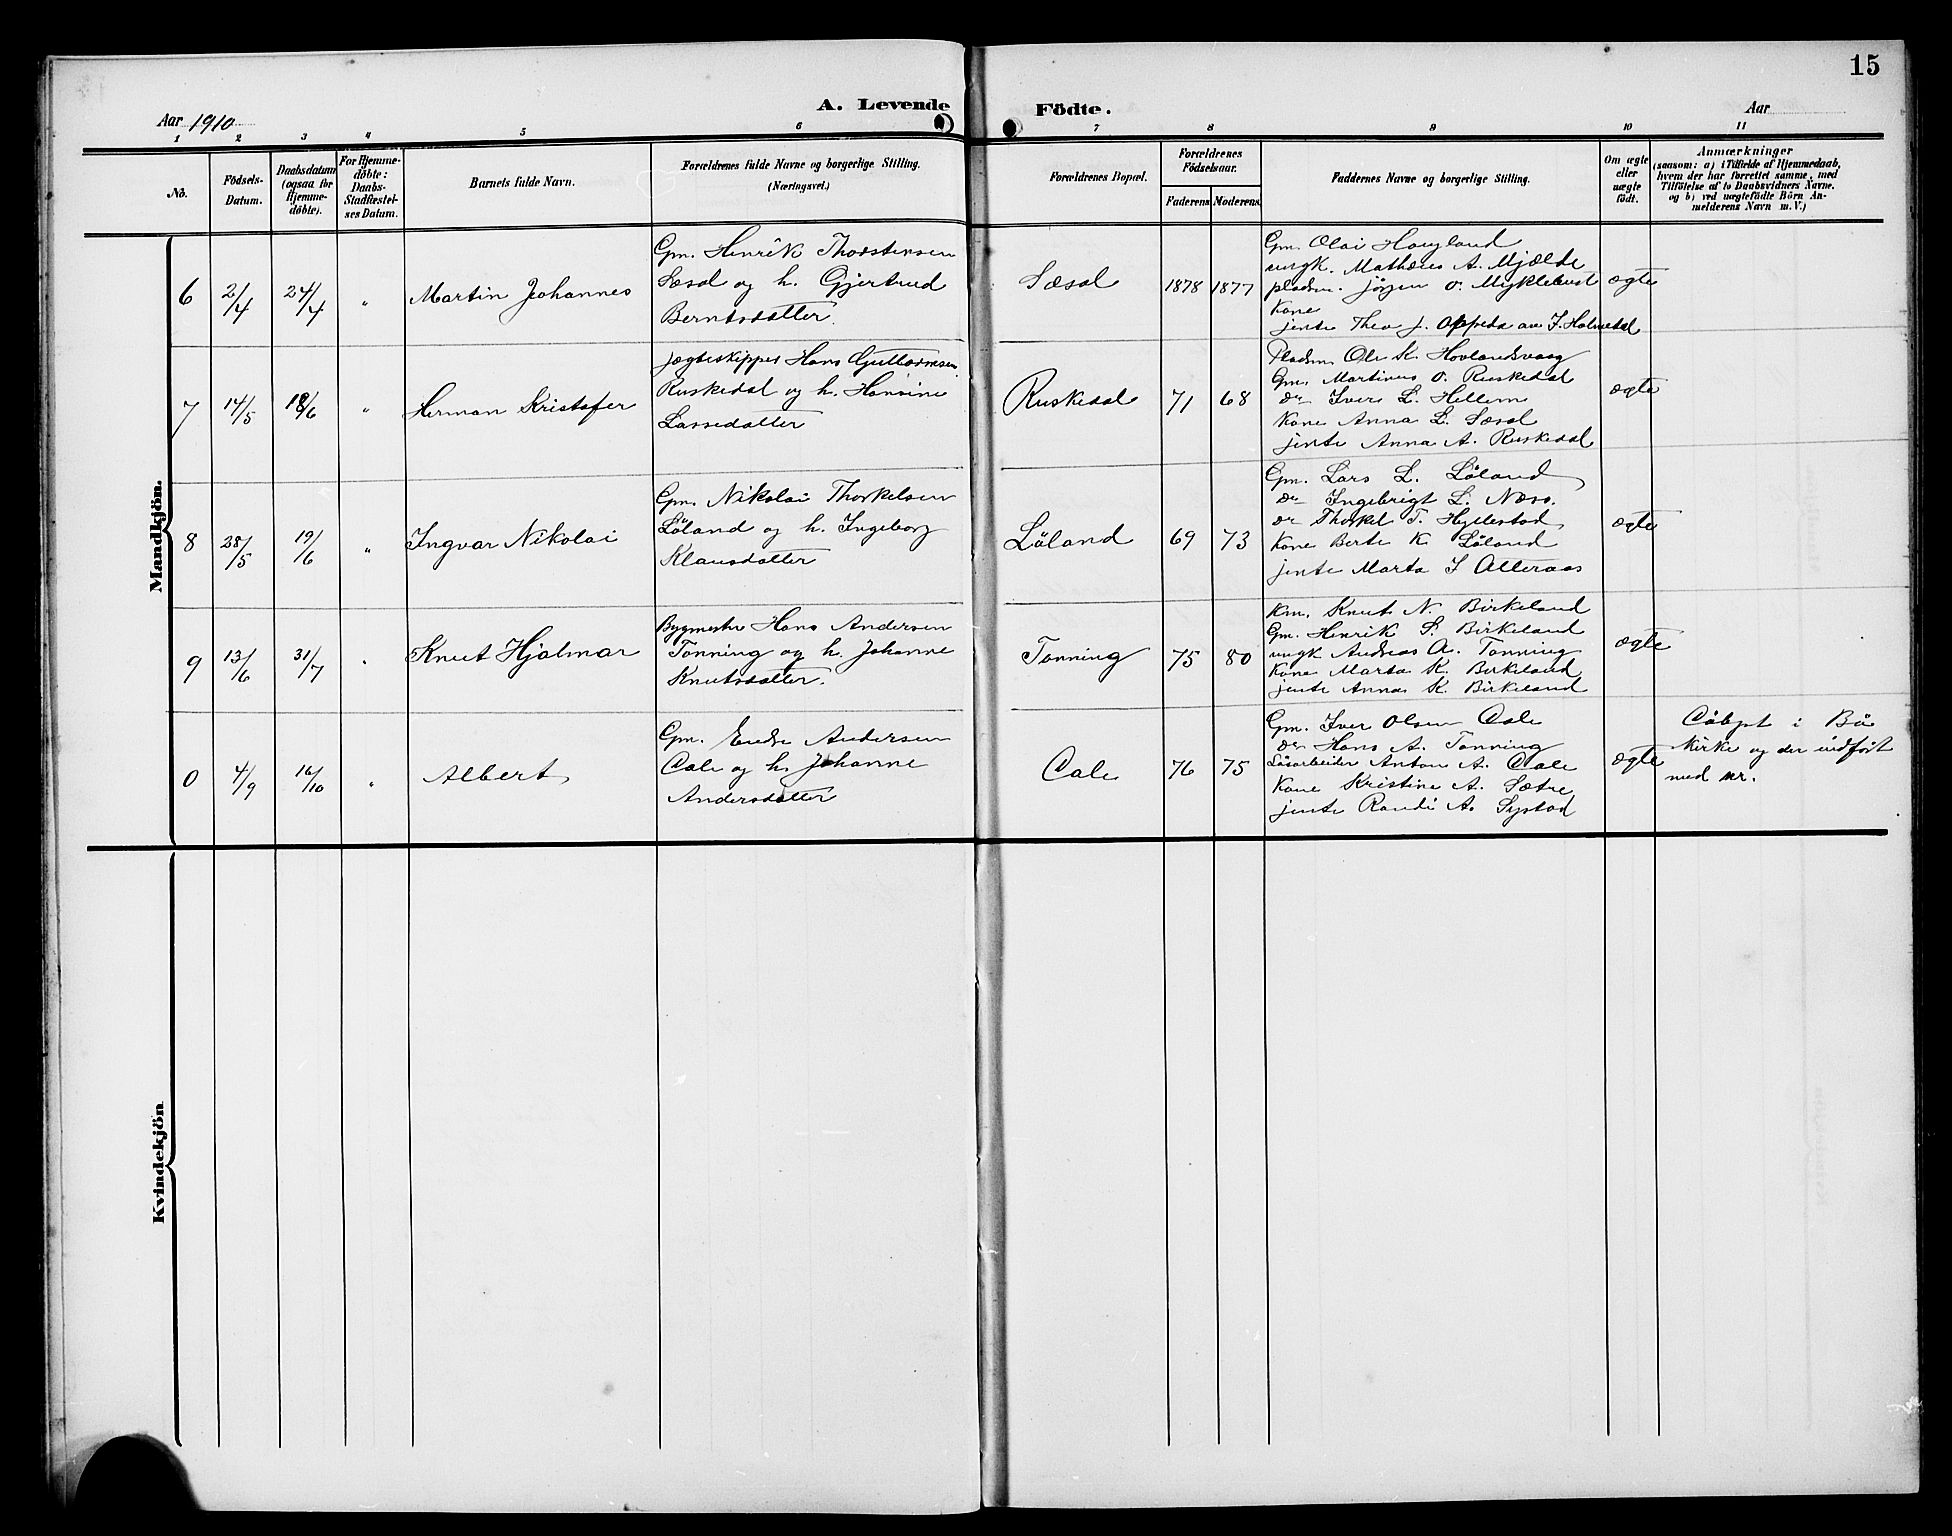 15
A. Levende Födte.
Aar 1910
Aar
1 2 3 4 5 6 7 8 9 10 11
No.
Födsels-
Datum.
Daabsdatum
(ogsaa for
Hjemme-
döbte).
For Hjemme-
döbte:
Daabs-
Stadfæstel-
ses Datum.
Barnets fulde Navn.
Forældrenes fulde Navne og borgerlige Stilling.
(Næringsvei.)
Forældrenes Bopæl.
Forældrenes
Födselsaar.
Faderens Moderens
Faddernes Navne og borgerlige Stilling.
Om ægte
eller
uægte
födt.
Anmærkninger
(saasom: a) i Tilfælde af Hjemmedaab,
hvem der har forrettet samme, med
Tilföielse af to Daabsvidners Navne.
og b) ved uægtefödte Börn An-
melderens Navn m. V.)
Mandkjön.
6 2/4 24/4 " Martin Johannes
Gm. Henrik Thorstensen
Sæsol og h. Gjertrud
Berntsdatter.
Sæsol 1878 1877
Gm. Olai Haugland
ungk. Mathæus A. Mjælde
pladsm. Jörgen O. Myklebust
Kone
jente Thea J. Oppedal av J. Holmedal
ægte
7 14/5 18/6 " Herman Kristofer
Jægteskipper Hans Guttormsen
Ruskedal og h. Hansine
Lassedatter
Ruskedal 71 68
Pladsm. Ole K. Hovlandsvaag
Gm. Martinus O. Ruskedal
do Iver L. Hellem
Kone Anna L. Sæsol
jente Anna A. Ruskedal
ægte
8 28/5 19/6 " Ingvar Nikolai
Gm. Nikolai Thorkelsen
Löland og h. Ingeborg
Klausdatter
Löland 69 73
Gm. Lars L. Löland
do Ingebrigt L. Næss.
do Thorkel T. Hyllestad
Kone Berte K Löland
jente Marta I Atteraas
ægte
9 13/6 31/7 " Knut Hjalmar
Bygmester Hans Andersen
Tonning og h. Johanne
Knutsdatter.
Tonning 75 80
Km. Knut N. Birkeland
Gm. Henrik S. Birkeland
ungk Andreas A. Tonning
Kone Marta K. Birkeland
jente Anna K. Birkeland
ægte
0 4/9 16/10 " Albert
Gm. Endre Andersen
Dale og h. Johanne
Andersdatter
Dale 76 75
Gm. Iver Olsen Dale
do Hans A. Tonning
Lösarbeider Anton A. Dale
Kone Kristine A. Sætre
jente Randi A. Systad
ægte
Döbpt i Bö
Kirke og der indfört
med nr.
Kvindekjön